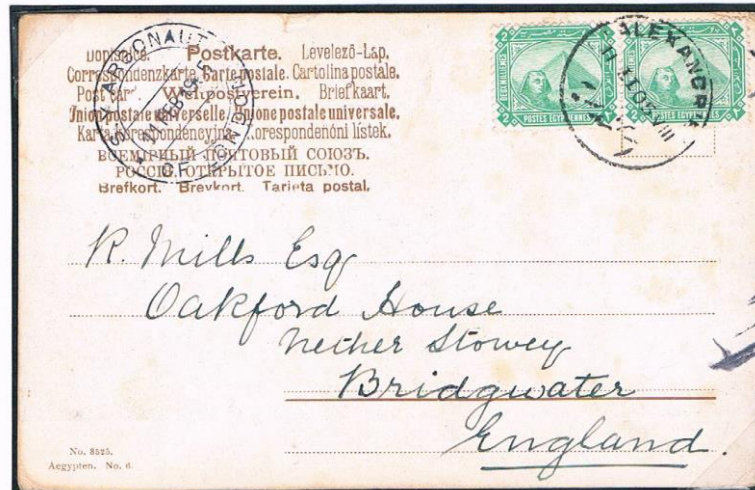 Dopisnice. Postkarte. Levelező-Lap.
Correspondenzkarte. Carte postale. Cartolina postale.
Post card. Weltpostverein. Briefkaart.
Union postale universelle. Unione postale universale.
Karta korespondencyjna. Korespondenční lístek.
ВСЕМІРНЫЙ ПОЧТОВЫЙ СОЮЗЪ.
РОССІЯ. ОТКРЫТОЕ ПИСЬМО.
Brefkort. Brevkort. Tarjeta postal.
S.Y. ARGONAUT
OF LONDON
11 FEB 1905
ALEXANDRI
POSTES EGYPTIENNES
POSTES EGYPTIENNES
R. Mills Esq
Oakford House
Nether Stowey
Bridgwater
England.
No. 8525.
Aegypten. No. 6.